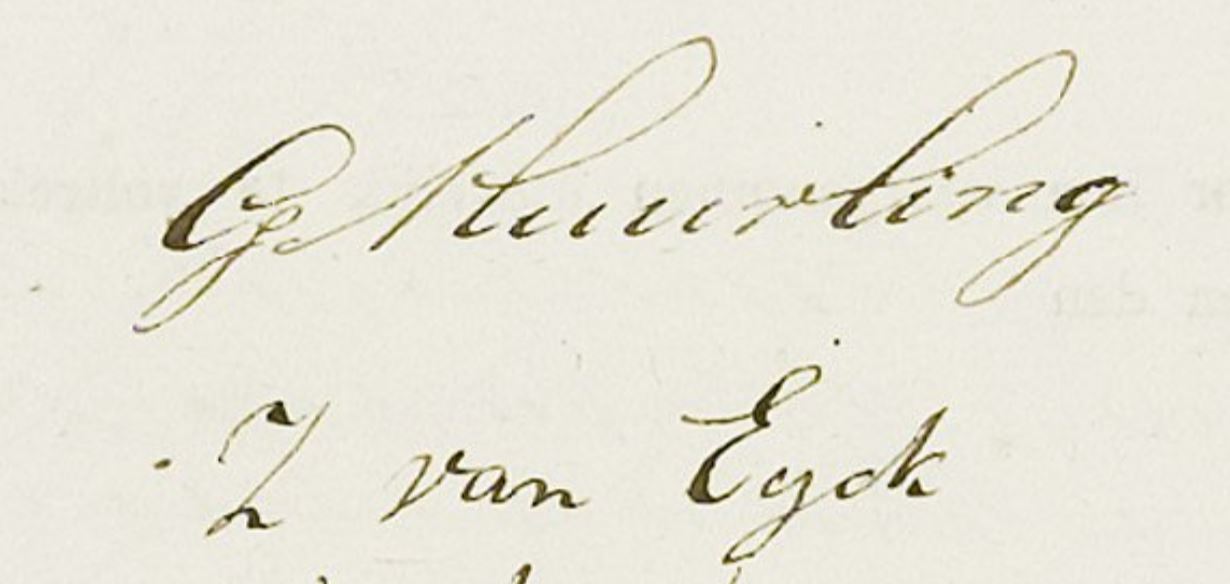 G Stuurling
Z van Eyck